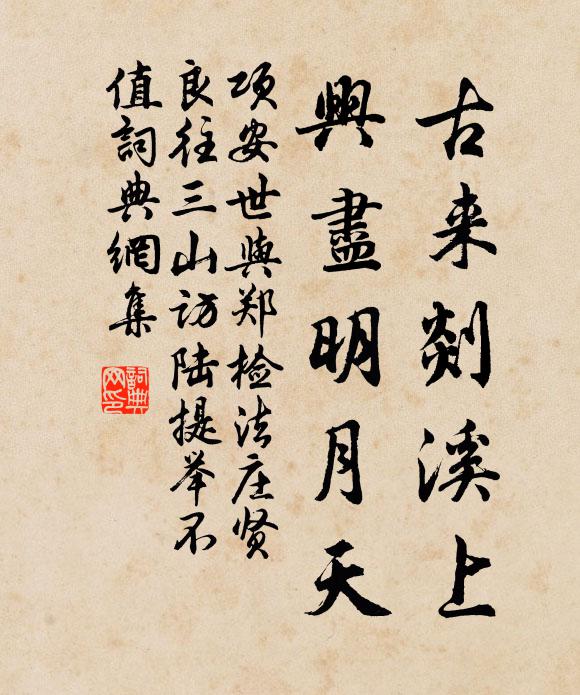 古来剡溪上
興盡明月天
项安世與郑检法庄贤
良往三山访陆提举不
值詞典網集
詞典网印